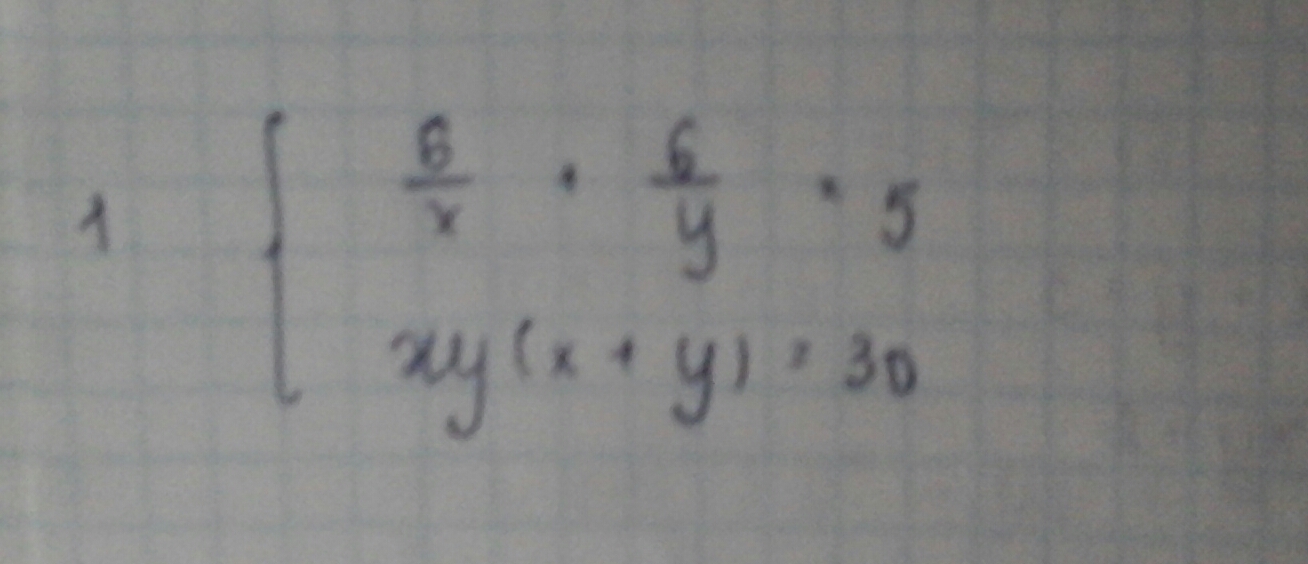 1 { 6/x + 6/y = 5
xy(x + y) = 30